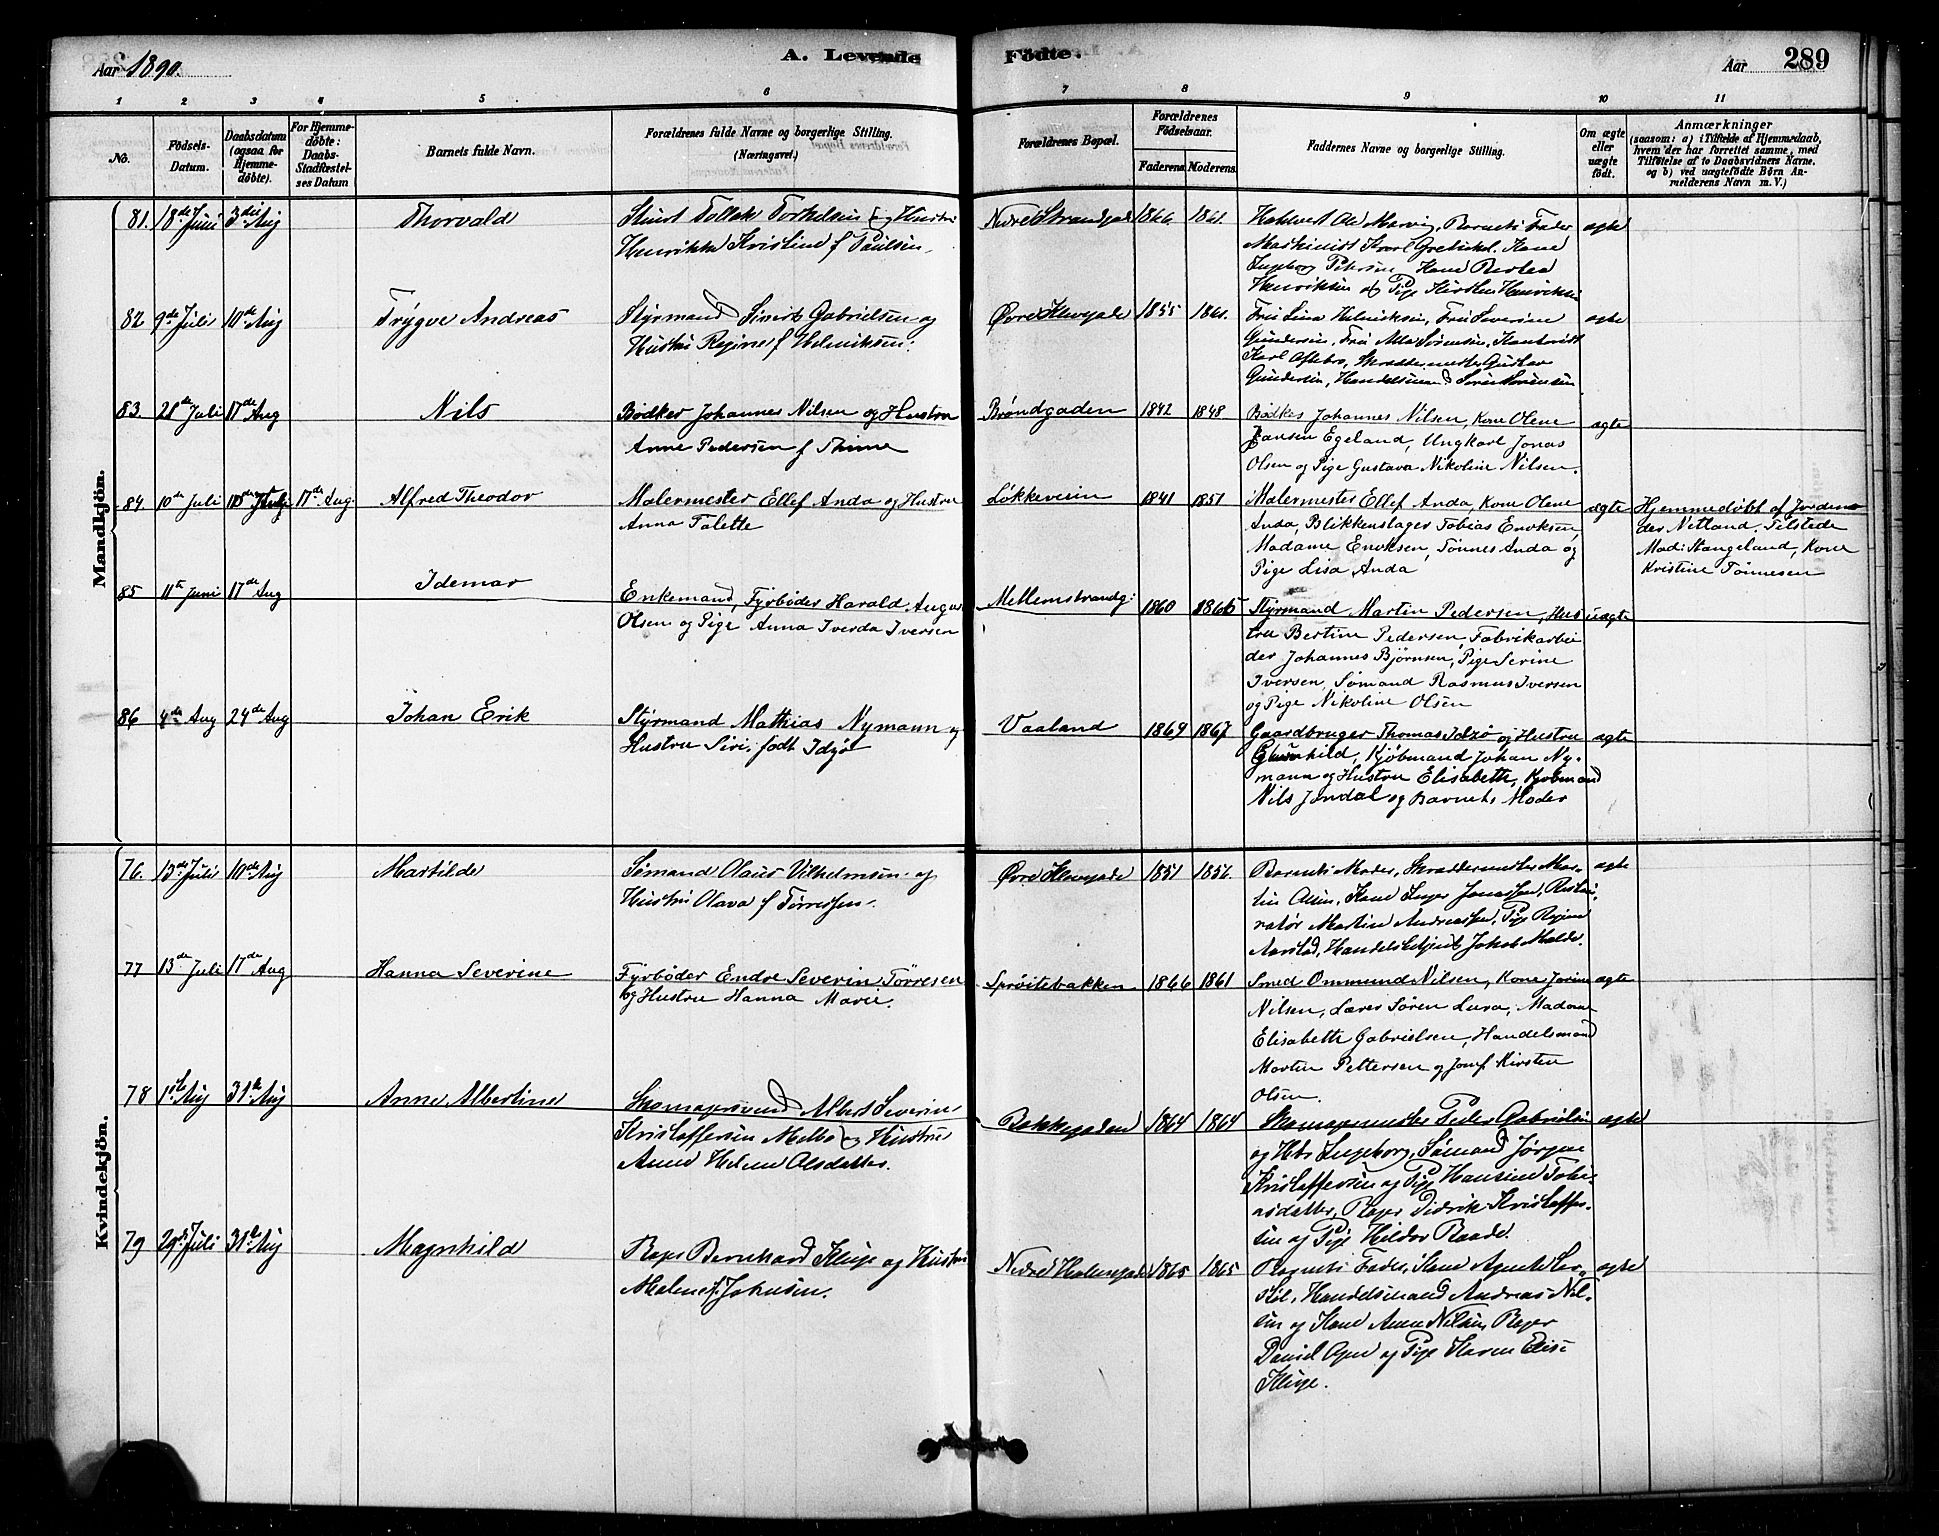 Aar 1890.
A. Levende
Födte.
Aar
289
1 2 3 4 5 6 7 8 9 10 11
No.
Födsels-
Datum.
Daabsdatum
(ogsaa for
Hjemme-
döbte).
For Hjemme-
döbte:
Daabs-
Stadfæstel-
ses Datum
Barnets fulde Navn.
Forældrenes fulde Navne og borgerlige Stilling.
(Næringsvei.)
Forældrenes Bopæl.
Forældrenes
Födselsaar.
Faderens. Moderens.
Faddernes Navne og borgerlige Stilling.
Om ægte
eller
uægte
födt.
Anmærkninger
(saasom: a) i Tilfælde af Hjemmedaab,
hvem der har forrettet samme, med
Tilföielse af to Daabsvidners Navne,
og b) ved uægtefödte Börn An-
melderens Navn m. V.)
Mandkjön.
81. 18de Juni 3die Aug
Thorvald
Tollak Torkelsen og Hustru
Henrikke Kristine f Paulsen.
Nedre Strandgade 1866. 1861.
Barnets Fader
Maskinist Karl Kone
Ingeborg Petersen
Henriksen og Pige Kirsten Henriksen
ægte
82 9de Juli 10de Aug
Trygve Andreas
Styrmand Simon Gabrielsen og
Hustru Regine f Helmiksen.
Øvre Klevegade 1855 1861.
Fru Lina Fru Severine
Gundersen, Fru Sørensen,
Karl Skræddermester Gustav
Gundersen, Handelsmand Søren Sørensen
ægte
83. 28de Juli 17de Aug
Nils
Bødker Johannes Nilsen og Hustru
Anne Pedersen f Thime
Brøndgaden 1842 1848
Bødker Johannes Nilsen, Kone Olene
Jansen Egeland, Ungkarl Jonas
Olsen og Pige Gustava Nikoline Nilsen.
ægte
84. 10de Juli 17de Aug.
Alfred Theodor
Malermester Ellef Anda og Hustru
Anna Talette
Løkkeveien 1841 1851
Malermester Ellef Anda, Kone Olene
Anda, Blikkenslager Tobias Enoksen,
Madame Enoksen, Tønnes Anda og
Pige Lisa Anda
ægte
Hjemmedøbt af Jordemo
der Netland. Tilstede
Mad: Stangeland, Kone
Kristine Tønnesen
85 11te Juni 17de Aug
Idemar
Enkemand, Fyrbøder Harald August
Olsen og Pige Anna Iverda Iversen
Mellemstrandg: 1860 1865
Styrmand Martin Pedersen, Hus
tru Bertine Pedersen, Fabrikarbei
der Johannes Bjørnsen, Pige Serine
Iversen, Sømand Rasmus Iversen
og Pige Nikoline Olsen
uægte
86 4de Aug 24de Aug
Johan Erik
Styrmand Mathias Nymann og
Hustru Siri, født Idsø
Vaaland 1869 1867
Gaardbruger Thomas Idsø og Hustru
Gunhild, Kjøbmand Johan Ny-
mann og Hustru Elisabeth, Kjøbmand
Nils Jondal og Barnets Moder
ægte
Kvindekjön.
76. 13de Juli 10de Aug
Mathilde
Sømand Olaus Vilhelmsen og
Hustru Olava f Tørressen.
Øvre Klevegade 1851 1856.
Barnets Moder, Skræddermester Mar-
tin Olsen, Kone Inger Jonassen,
Martin Andreassen, Pige Regine
Aarstad, Handelsbetjent Jakob Malde.
ægte
77 13de Juli 17de Aug
Hanna Severine
Fyrbøder Endre Severin Tørresen
og Hustru Hanna Marie.
Sprøitebakken 1866 1861
Smed Ommund Nilsen, Kone Jorine
Nilsen, Lærer Søren Lura, Madam
Elisabeth Gabrielsen, Handelsmand
Martin Pettersen og Jomf Kirsten
Olsen.
ægte
78 1ste Aug 31te Aug
Anne Albertine
Skomagersvend Albert Severin
Kristoffersen Melbo og Hustru
Anne Helene Olsdatter.
Bakkegaden 1864 1864
Skomagermester Peder Gabrielsen
og Hst. Ingeborg, Sømand Jørgen
Kristoffersen og Pige Hansine Tobi-
asdatter, Bager Didrik Kristoffer-
sen og Pige Hilda Raade.
ægte
79 29de Juli 31te Aug
Magnhild
Bager Bernhard Kluge og Hustru
Malene f. Johnsen.
Nedre Holmegade 1865 1865
Barnets Fader, Kone Agnete
Handelsmand Andreas Nil-
sen og Kone Anne Nilsen, Bager
Daniel og Pige Karen Elise
Kluge.
ægte